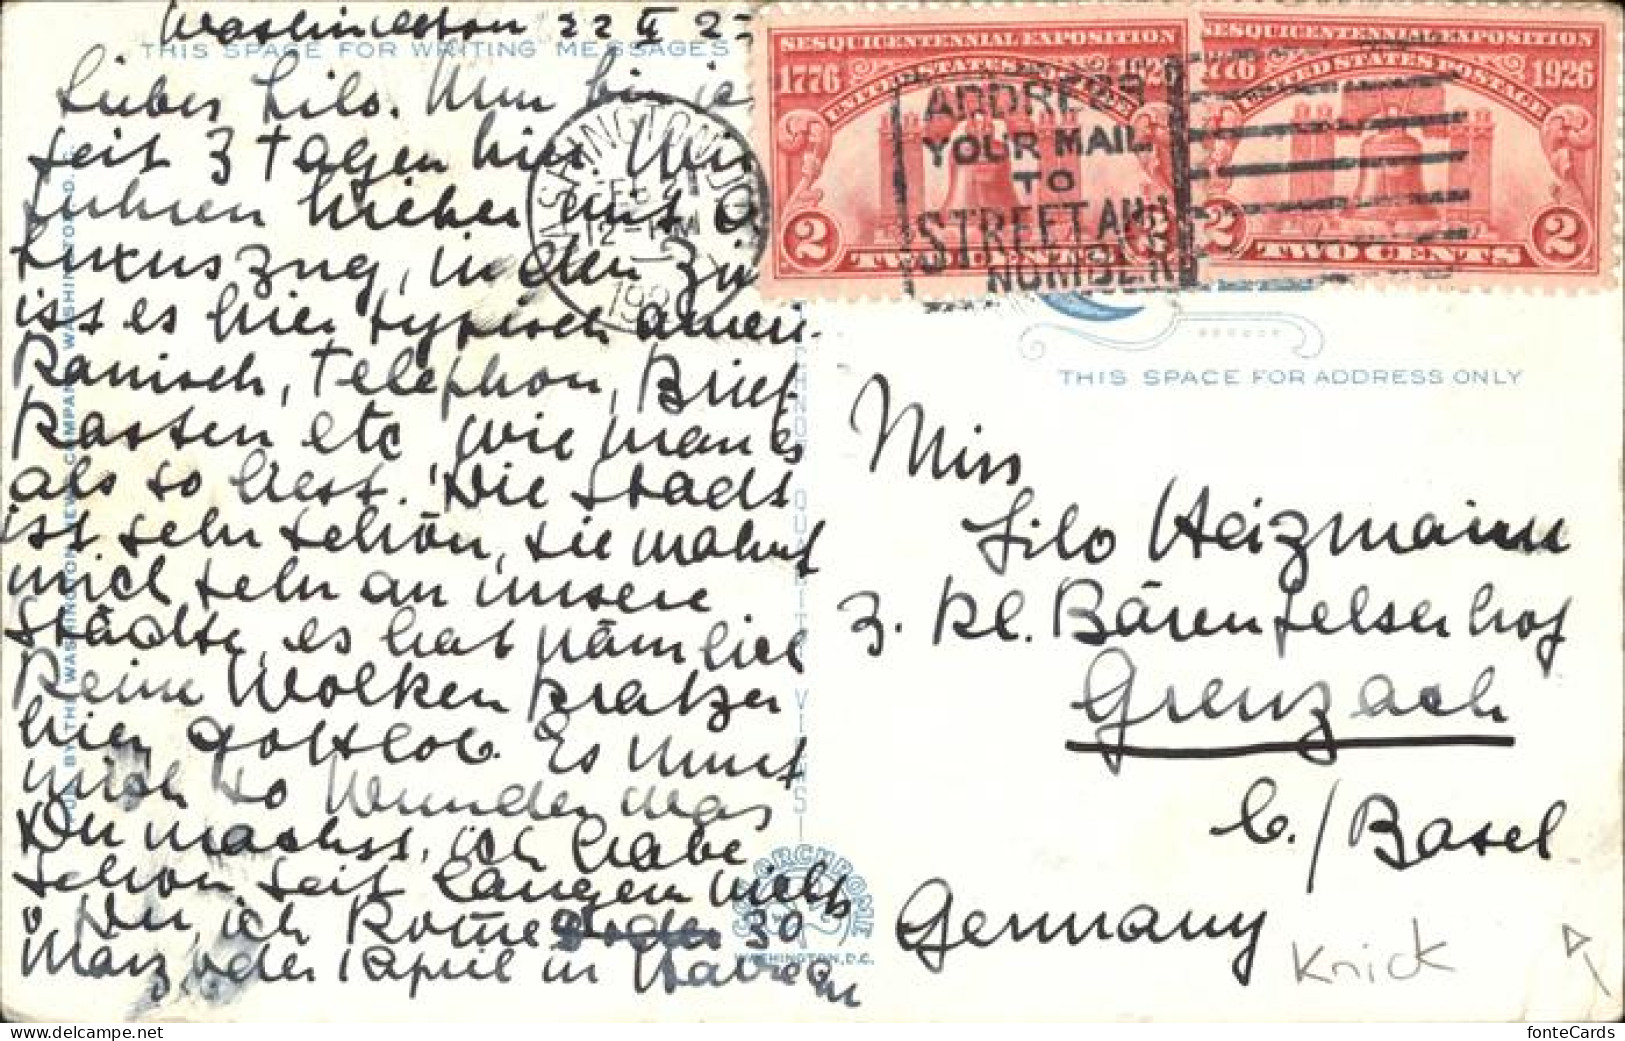 Washington 22 II 2
THIS SPACE FOR WRITING MESSAGES
Lieber Lilo. Nun bin ic
seit 3 Tagen hier. Wir
fuhren hieher mit
Luxuszug, in den Zi
ist es hier typisch ameri-
kanisch, Telephon, Brief-
kasten etc wie man es
als so liest. Die Stadt
ist sehr schön, sie mahnt
mich sehr an unsere
Städte, es hat nämlich
keine Wolkenkratzer
hier gottlob. Es nimt
mich so Wunder was
Du machst, ich habe
schon seit langem nichts
Du, ich komme 30
März oder 1 April in Havre an
WASHINGTON
12-PM
SESQUICENTENNIAL EXPOSITION
1776 1926
UNITED STATES POSTAGE
2 TWO CENTS 2
SESQUICENTENNIAL EXPOSITION
1776 1926
UNITED STATES POSTAGE
2 TWO CENTS 2
ADDRESS
YOUR MAIL
TO
STREET AND
NUMBER
THIS SPACE FOR ADDRESS ONLY
Miss
Lilo Heizmann
z. kl. Bärenfelserhof
Grenzach
b./Basel
Germany
Knick
WASHINGTON, D.C.
fonteCards